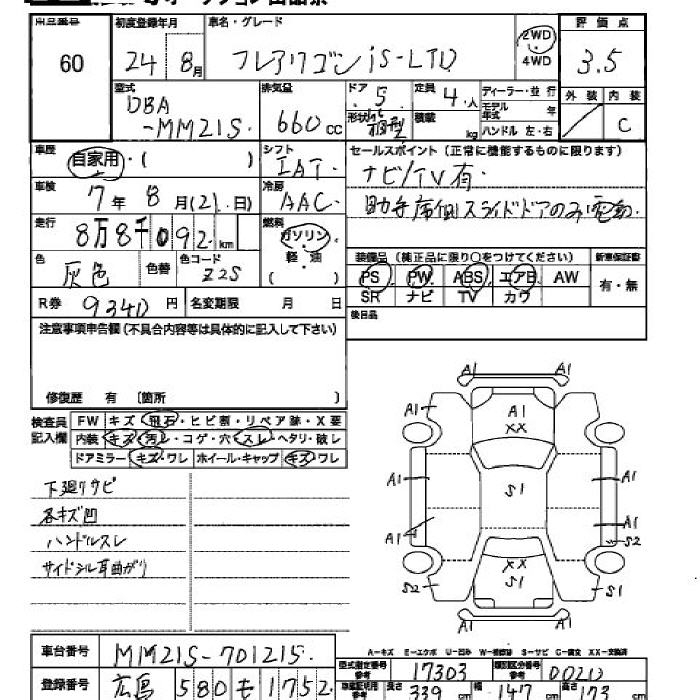 60
初度登録年月 24 8月
車名・グレード フレアワゴン iS-LTD
2WD
4WD
評価点 3.5
型式 DBA
-MM21S
排気量 660 cc
ドア 5
形状
定員 4人
積載 kg
ディーラー・並行
モデル年式 年
ハンドル 左・右
外装 内装
C
車歴 自家用・( )
シフト IAT
冷房 AAC
セールスポイント(正常に機能するものに限ります)
ナビ/TV有
助手席側スライドドアのみ電動
車検 7年 8月(21.日)
走行 8万8千092 km
燃料 ガソリン
軽・油
( )
色 灰色 色替 色コード Z2S
装備品(純正品に限り○をつけてください) 新車保証書
PS PW ABS エアB AW 有・無
SR ナビ TV カワ
R券 9340円 名変期限 月 日
後日品
注意事項申告欄(不具合内容等は具体的に記入して下さい)
修復歴 有 〔箇所 〕
検査員記入欄
FW キズ・飛石・ヒビ割・リペア跡・X要
内装 キズ・汚レ・コゲ・穴・スレ・ヘタリ・破レ
ドアミラー キズ・ワレ ホイール・キャップ キズ・ワレ
下廻りサビ
各キズ凹
ハンドルスレ
サイドシル耳曲がり
A1 A1
A1 A1 A1
XX
A1 S1 A1
A1 A1
S2
XX
S2 S1 S1
A1 A1
A-キズ E-エクボ U-凹み W-補修跡 S-サビ C-腐食 XX-交換済
車台番号 MM21S-701215
型式指定番号 17303 類別区分番号
登録番号 広島 580 も 1752
長さ 339 cm 幅 147 cm 高さ 173 cm